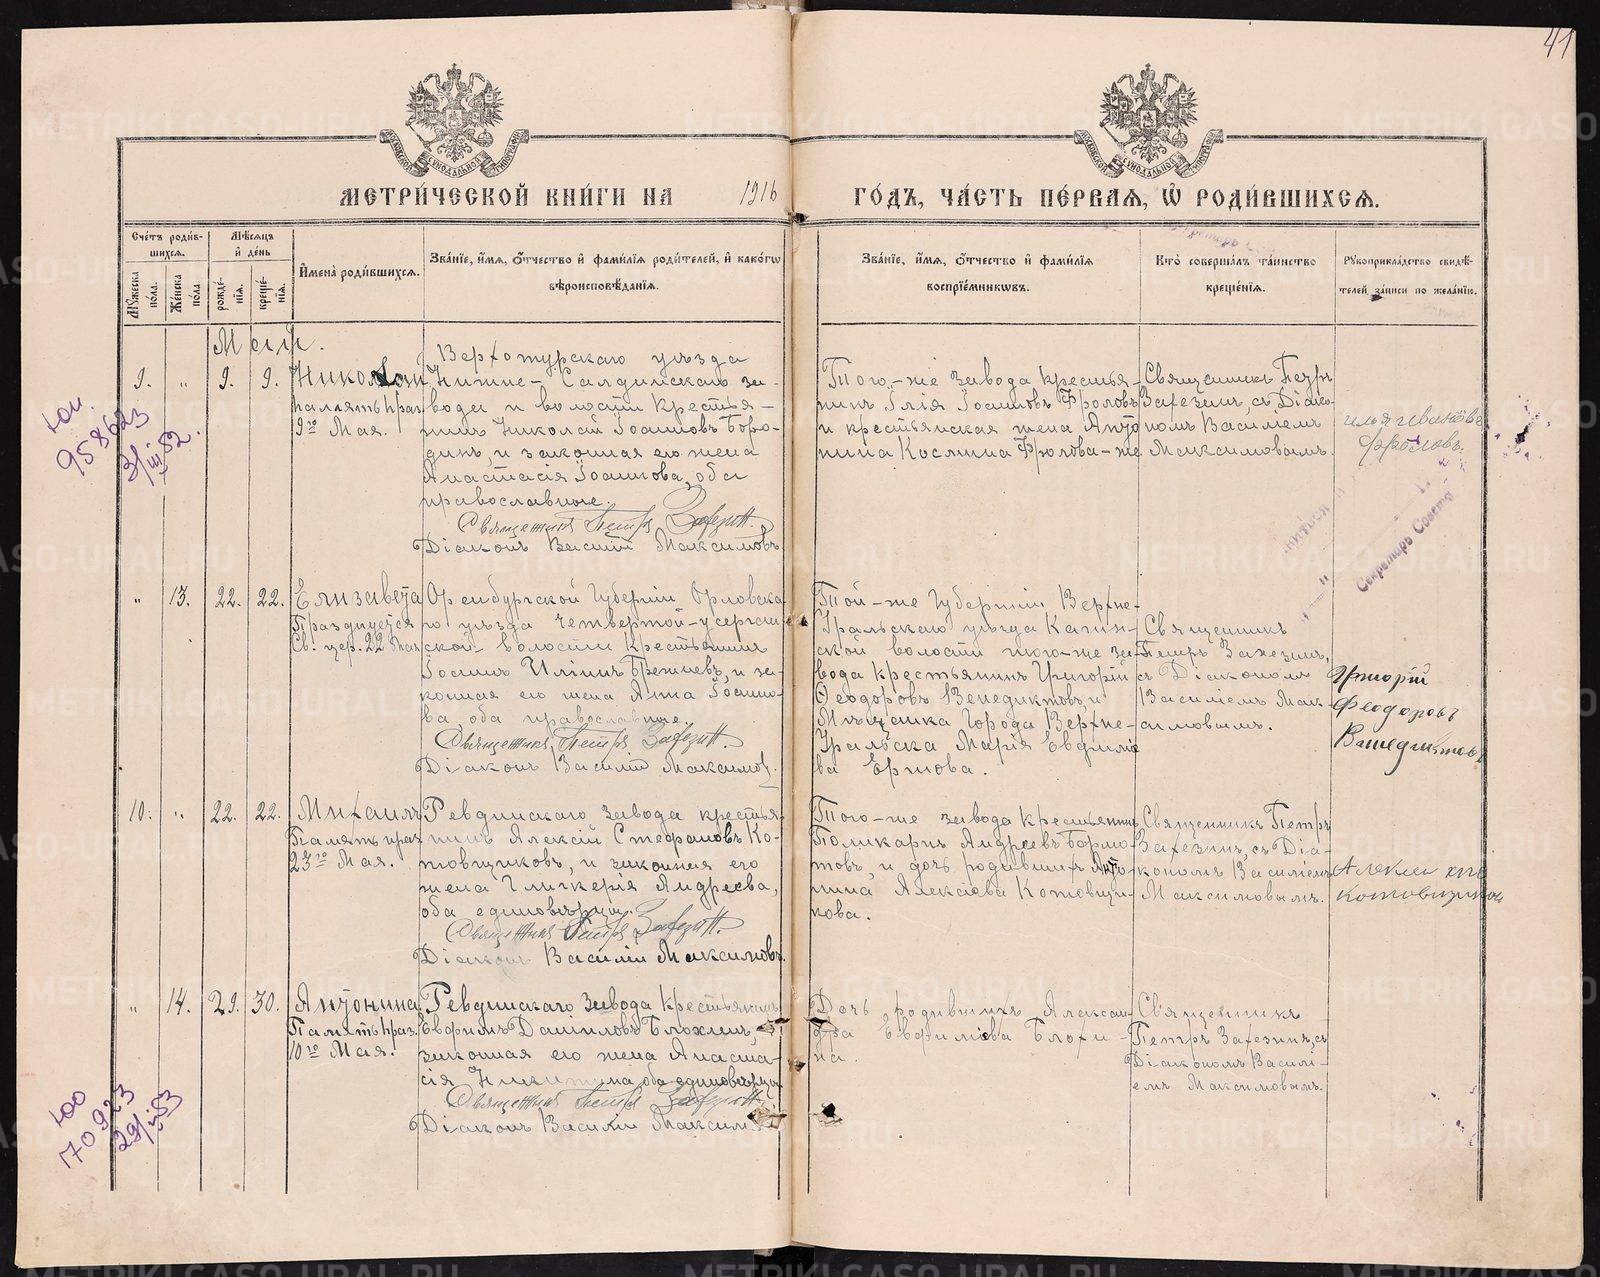 41
МЕТРИ́ЧЕСКОЙ КНИ́ГИ НА 1916 ГО́ДЪ, ЧА́СТЬ ПЕ́РВАѦ, Ѡ҆ РОДИ́ВШИХСѦ.
Сче́тъ роди́в-
шихсѧ.
Мꙋ́жеска по́ла.
Же́нска по́ла.
Мѣ́сѧцъ
и҆ де́нь
рожде́-
нїѧ.
креще́-
нїѧ.
И҆мена̀ роди́вшихсѧ.
Зва́нїе, и҆́мѧ, ѻ҆́тчество и҆ фами́лїѧ роди́телей, и҆ како́гѡ
вѣроисповѣ́данїѧ.
Зва́нїе, и҆́мѧ, ѻ҆́тчество и҆ фами́лїѧ
воспрїе́мникѡвъ.
Кто̀ соверша́лъ та́инство
креще́нїѧ.
Рꙋкоприкла́дство свидѣ́-
телей за́писи по жела́нїю.
Май.
9. „ 9. 9.
Николай
Память праз.
9го Мая.
Верхотурскаго уѣзда
Нижне-Салдинскаго за-
вода и волости крестья-
нинъ Николай Іоанновъ Боро-
динъ, и законная его жена
Анастасія Іоаннова, оба
православные.
Священникъ Петръ Захезинъ.
Діаконъ Василій Максимовъ
Того-же завода крестья-
нинъ Илія Іоанновъ Фроловъ
и крестьянская жена Анто
нина Космина Фролова-же
Священникъ Петръ
Захезинъ, съ Діако-
номъ Василіемъ
Максимовымъ.
Илья Ивановъ
Фроловъ.
Секретарь Совета
958623
„ 13. 22. 22.
Елизавета
Празднуется
Св. цер. 22 Мая
Оренбургской Губерніи Орловска-
го уѣзда Четвертой-
ской волости крестьянинъ
Іоаннъ Иліинъ и за-
конная его жена Анна Іоанно-
ва, оба православные.
Священникъ Петръ Захезинъ.
Діаконъ Василій Максимовъ.
Той-же Губерніи Верхне-
Уральскаго уѣзда
ской волости того-же за-
вода крестьянинъ Григорій
Ѳеодоровъ Венедиктовъ, и
Мѣщанка города Верхне-
Уральска Марія Евфиміе
ва Ершова.
Священникъ
Петръ Захезинъ,
съ Діакономъ
Василіемъ Мак-
симовымъ.
Григорій
Феодоровъ
Венедиктовъ
10. „ 22. 22.
Михаилъ
Память праз
23го Мая.
Ревдинскаго завода крестья-
нинъ Алексій Стефановъ Ко-
товщиковъ, и законная его
жена Гликерія Андреева,
оба единовѣрцы.
Священникъ Петръ Захезинъ.
Діаконъ Василій Максимовъ.
Того-же завода крестьянинъ
Поликарпъ Андреевъ Бормо-
товъ, и дочь родившихъ Анто-
нина Алексіева Котовщи-
кова.
Священникъ Петръ
Захезинъ, съ Діа-
кономъ Василіемъ
Максимовымъ.
Котовщиковъ
„ 14. 29. 30.
Антонина
Память праз.
10го Мая.
Ревдинскаго завода крестьянинъ
Евфимъ Даниловъ Блохинъ, и
законная его жена Анаста-
сія Никитина, оба единовѣрцы
Священникъ Петръ Захезинъ.
Діаконъ Василій Максим
Дочь родившихъ Алексан-
дра Евфиміева Блохи-
на.
Священникъ
Петръ Захезинъ, съ
Діакономъ Василі-
емъ Максимовымъ.
70923